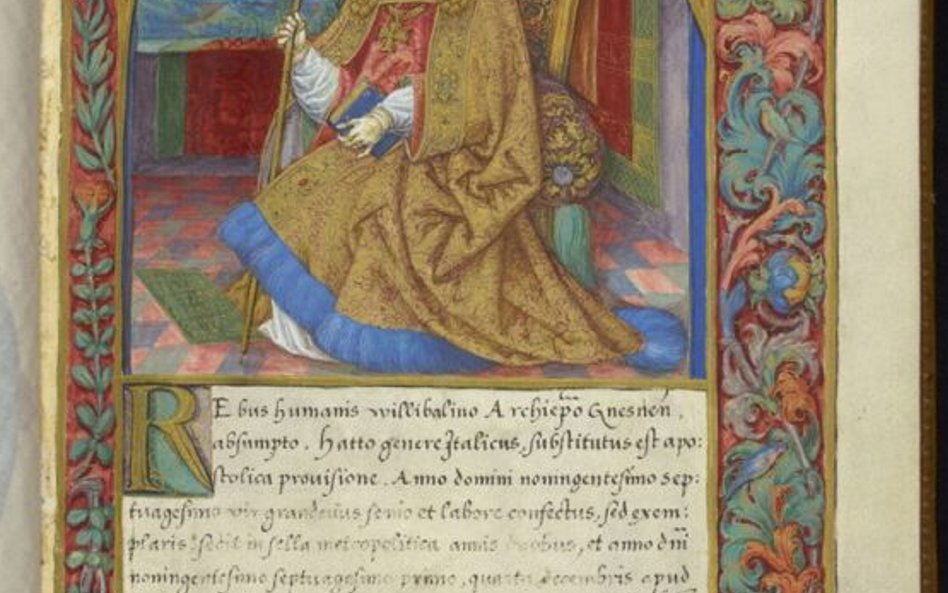 RE bus humanis willibalino Archiepo Gnesnen,
absumpto. Hatto genere Italicus, substitutus est apo:
stolica provisione. Anno domini noningentesimo sep:
tuagesimo vir grandevus senio et labore confectus, sed exem:
plaris sedit in sella metropolitica annis duobus, et anno dni
noningentesimo septuagesimo primo, quarta decembris apud